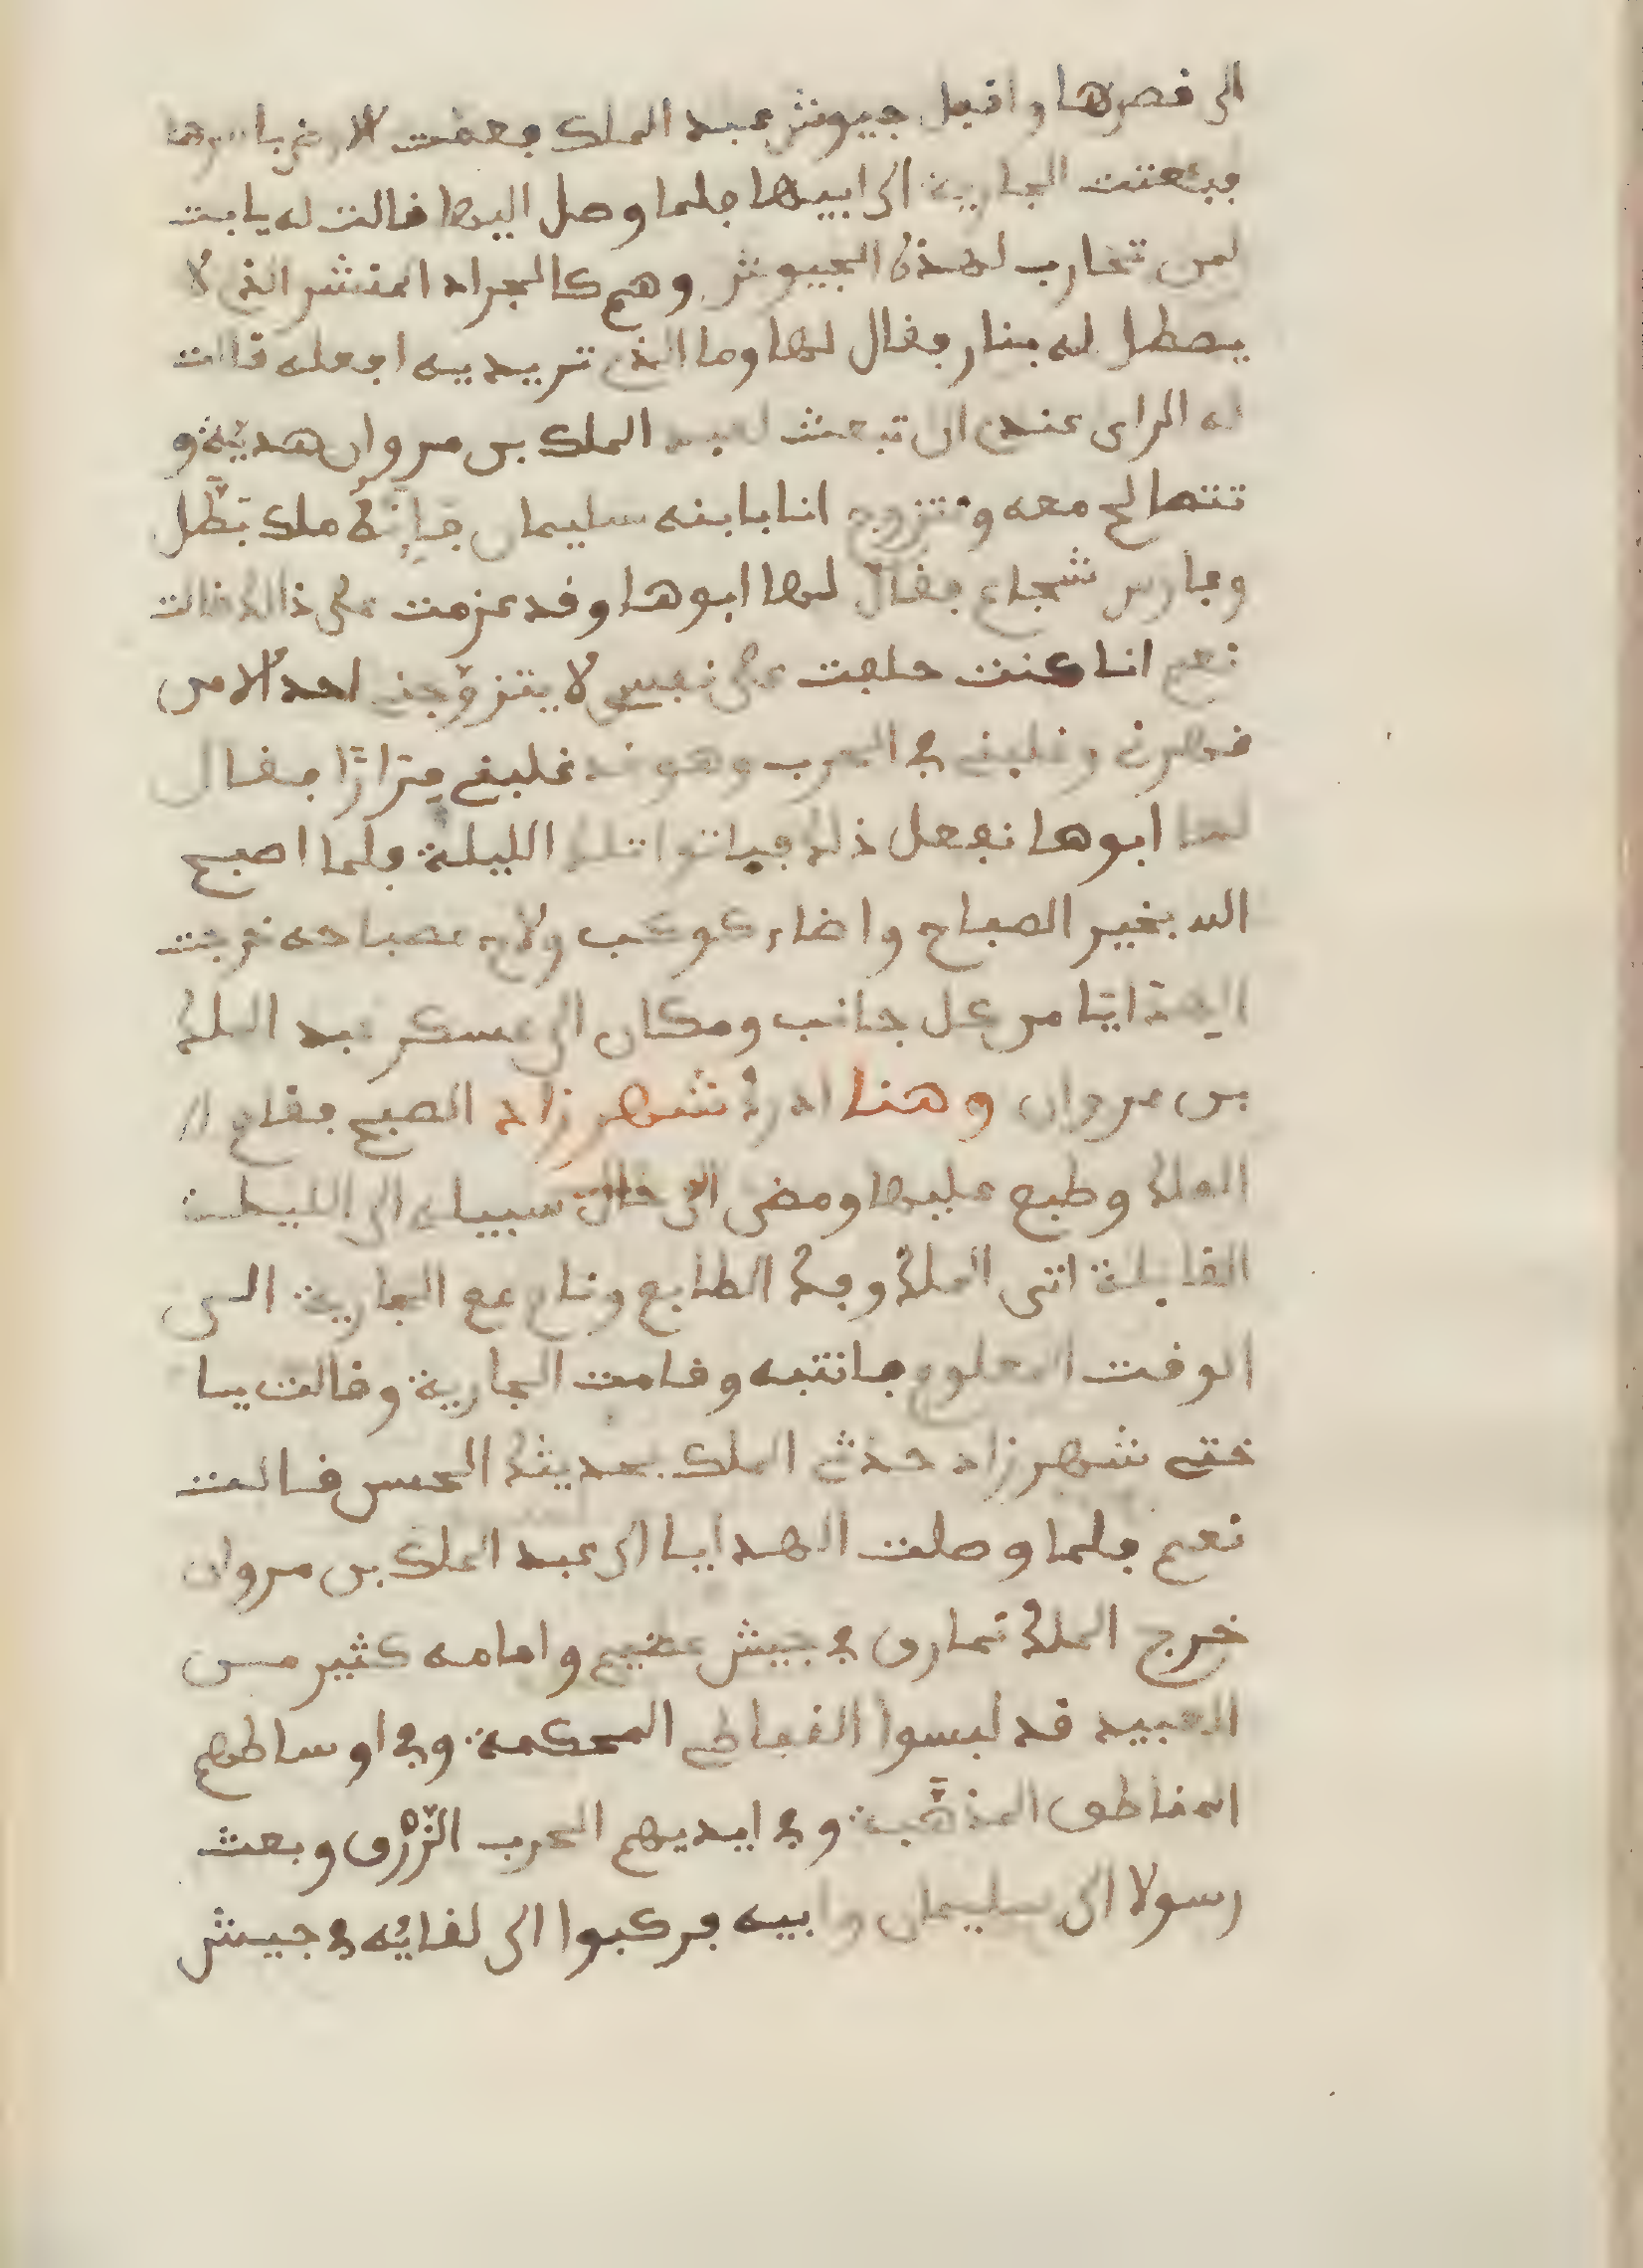 الى قصرها واقبل جيوش عبد الملك فعمت الارض باسرها
فبعثت الجارية الى ابيها فلما وصل اليها قالت له يابت
لمن تحارب لهذه الجيوش وهم كالجراد المنتشر الذي لا
يصطل له بنار فقال لها وما الذي تريديه افعله قالت
له الراى عندي ان تبعث لعبد الملك بن مروان هديّة و
تتصالح معه ونتزوج انا بابنه سليمان فإنّه ملك بَطَل
وفارس شجاع فقال لها ابوها وقد عزمت على ذالك قالت
نعم انا كنت حلفت على نفسي لا يتزوّجني احد الا من
قهرني وغلبني في الحرب وهو قد غلبني مِرَارًا فقال
لها ابوها نفعل ذلك فباتوا تلك الليلة فلما اصبح
الله بخير الصباح واضاء كوكب ولاح مصباحه خرجت
الهدايا من كل جانب ومكان الى عسكر عبد الملك
بن مروان وهنا ادرك شهرزاد الصبح فقام //
الملك وطبع عليها ومضى الى حال سبيله الى الليلة
القابلة اتى الملك وفك الطابع ونام مع الجارية الى
الوقت المعلوم فانتبه وقامت الجارية وقالت يا
ختي شهرزاد حدثي الملك بحديثك الحسن قالت
نعم فلما وصلت الهدايا الى عبد الملك بن مروان
خرج الملك تمارق في جيش عضيم وامامه كثير من
العبيد قد لبسوا القباطي المحكمة وفي اوساطهم
المناطق المذهّبة وفي ايديهم الحرب الزّرْق وبعث
رسولا الى سليمان وابيه فركبوا الى لقائه في جيش